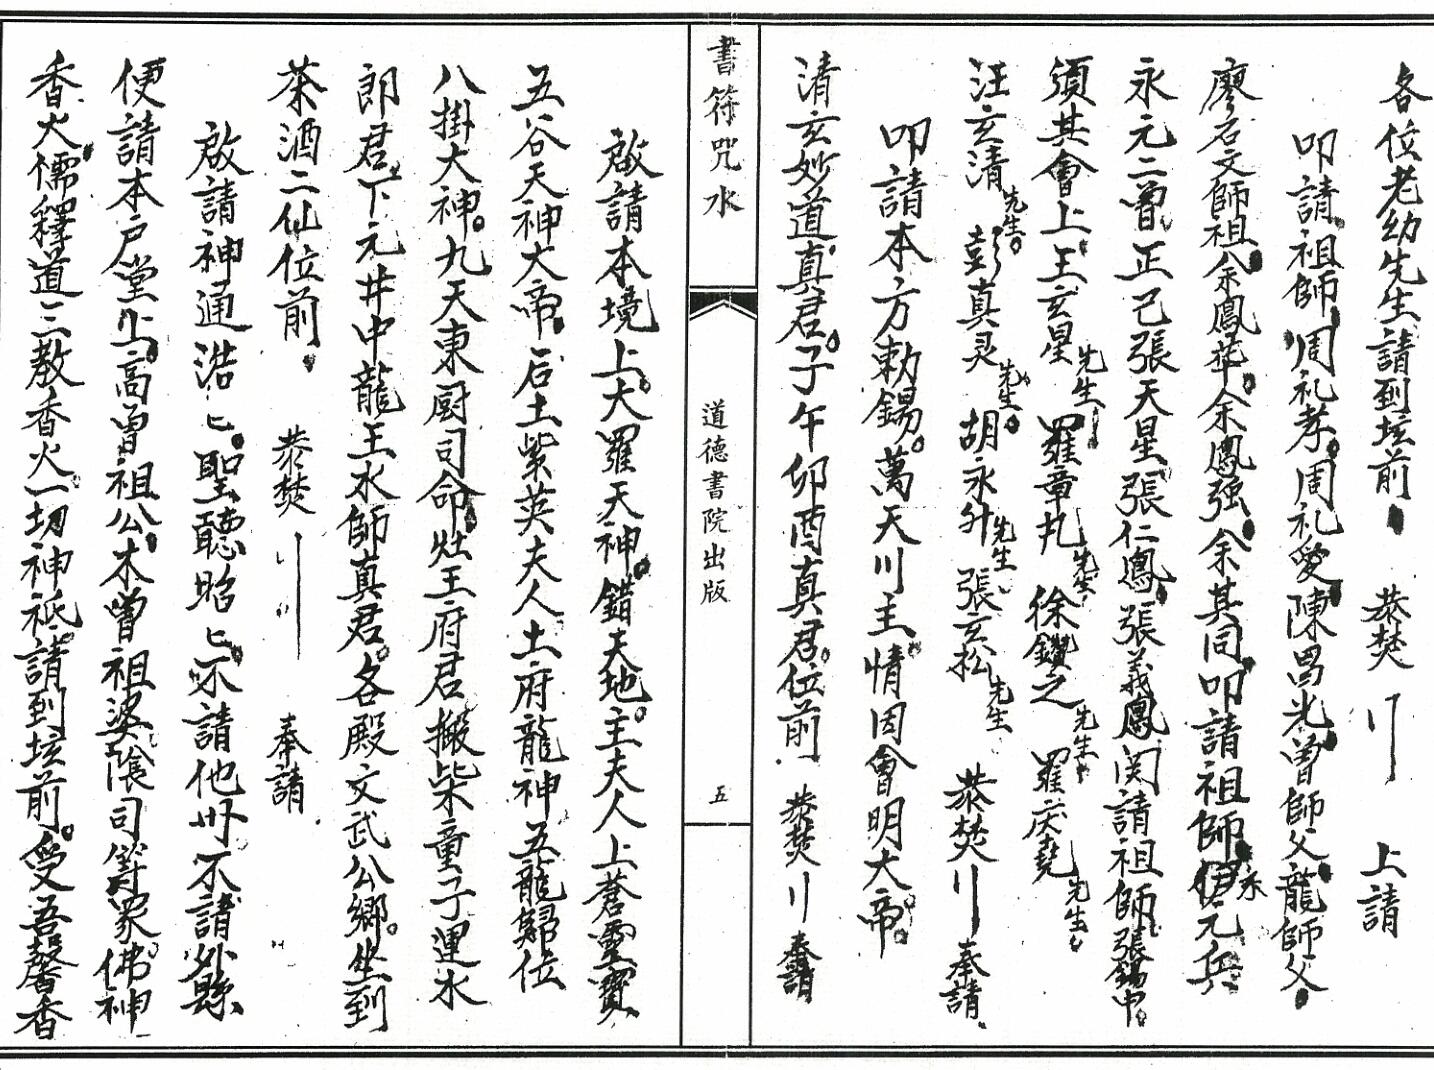 各位老幼先生請到坛前。 恭焚 上請
叩請。祖師。周礼孝。周礼愛。陳昌光。曾師父。龍師父。
廖石文師祖。余鳳華。余鳳强。余其同。叩請祖師。永元兵
永元二曾。正己張天星張仁鳳。張義鳳。関請祖師。張錫中。
須其會上。王玄星先生 羅章扎先生 徐鑽之先生 羅庆堯先生
汪玄清先生。彭真灵先生。胡永升先生 張玄松先生 恭焚 奉請
叩請本方敕錫。萬天川主。情因會明大帝。
清玄妙道真君。子午卯酉真君。位前 恭焚 奉請
書符咒水
道德書院出版
五
啟請本境上。大羅天神。錯夫地。主夫人上蒼靈寶
五谷天神大帝。后土紫英夫人土府龍神五龍歸位
八掛大神。九天東厨司命。灶王府君搬柴童子運水
郎君。下元井中龍王水師真君。各殿文武公鄉。坐到
茶酒二仙位前。 恭焚 奉請
啟請神通浩匕。聖聽昭匕。不請他州不請外縣
便請本戶堂上。高曾祖公。本曾祖婆。陰司簿冢。佛神
香火。儒釋道三教香火一切神祇。請到坛前。受吾馨香